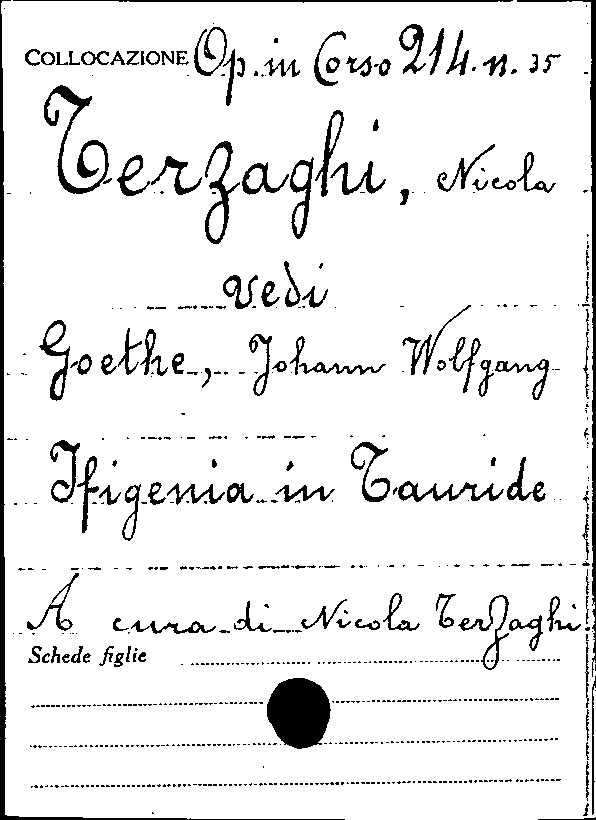 COLLOCAZIONE Op. in Corso 214. n. 35
Terzaghi, Nicola
vedi
Goethe, Johann Wolfgang
Ifigenia in Tauride
A cura di Nicola Terzaghi.
Schede figlie